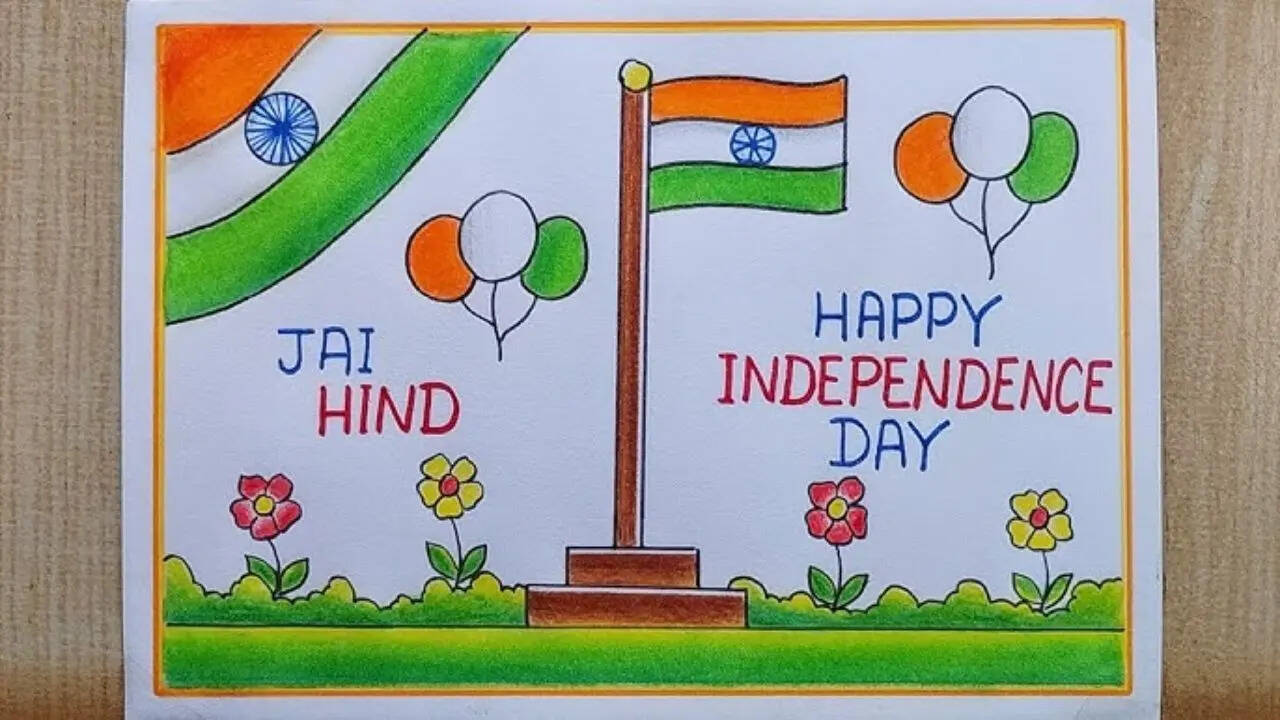 JAI
HIND
HAPPY
INDEPENDENCE
DAY